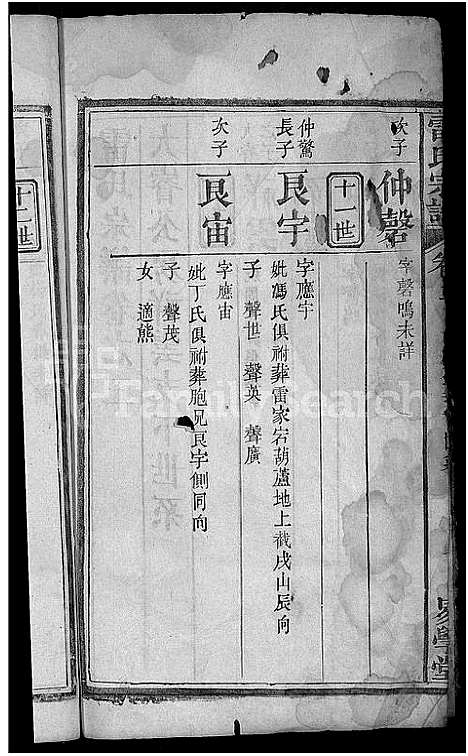 雷氏宗譜
易學堂
次子
仲磬
字磬鳴未詳
十一世
仲驚
長子
良宇
字應宇
妣馮氏俱祔葬雷家宕葫蘆地上截戌山辰向
子 聲世 聲英 聲廣
次子
良宙
字應宙
妣丁氏俱祔葬胞兄良宇側同向
子 聲茂
女 適熊
十二世
FamilySearch